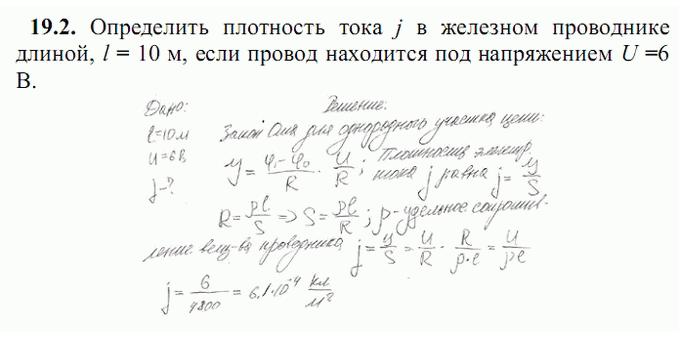 19.2. Определить плотность тока j в железном проводнике
длиной, l = 10 м, если провод находится под напряжением U =6
В.
Дано: Решение:
l=10м Закон Ома для однородного участка цепи:
U=6В y = (φ₁-φ₀)/R · U/R; Плотность электр.
j-? тока j равна j = y/S
R = ρl/S => S = ρl/R; ρ-удельное сопротив-
ление вещ-ва проводника j = y/S = U/R · R/(ρ·l) = U/(ρl)
j = 6/4800 = 6,1·10⁻⁴ Кл/м²